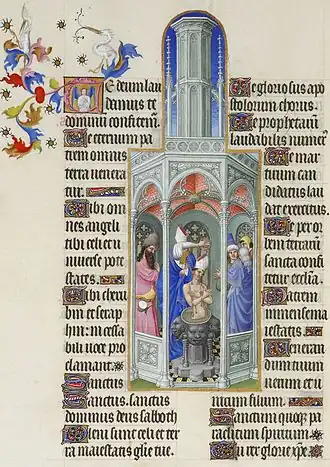 Te deum lau
damus te
dominū confitem̄.
Te eternum pa
trem omnis
terra venera
tur. Tibi om
nes angeli
tibi celi et u
niverse pote
states.
Tibi cheru
bin et serap
hin: incessa
bili voce pro
clamant.
Sanctus
Sanctus. sanctus
dominus deus sabaoth
Pleni sunt celi et ter
ra maiestatis gl̄ie tue.
Te gloriosus apo
stolorum chorus.
Te prophetarum
laudabilis numer
Te mar
tirum can
didatus lau
dat exercitus.
Te per or
bem terrarū
sancta confi
tetur ecclīa.
Patrem
inmense ma
iestatis.
Veneran
dum tuum
verum et u
nicum filium.
Sanctum quoqꝫ pa
raclitum spiritum.
Tu rex glorie xp̄e.